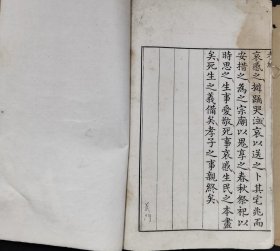 哀慼之擗踊哭泣哀以送之卜其宅兆而
安措之為之宗廟以鬼享之春秋祭祀以
時思之生事愛敬死事哀慼生民之本盡
矣死生之義備矣孝子之事親終矣